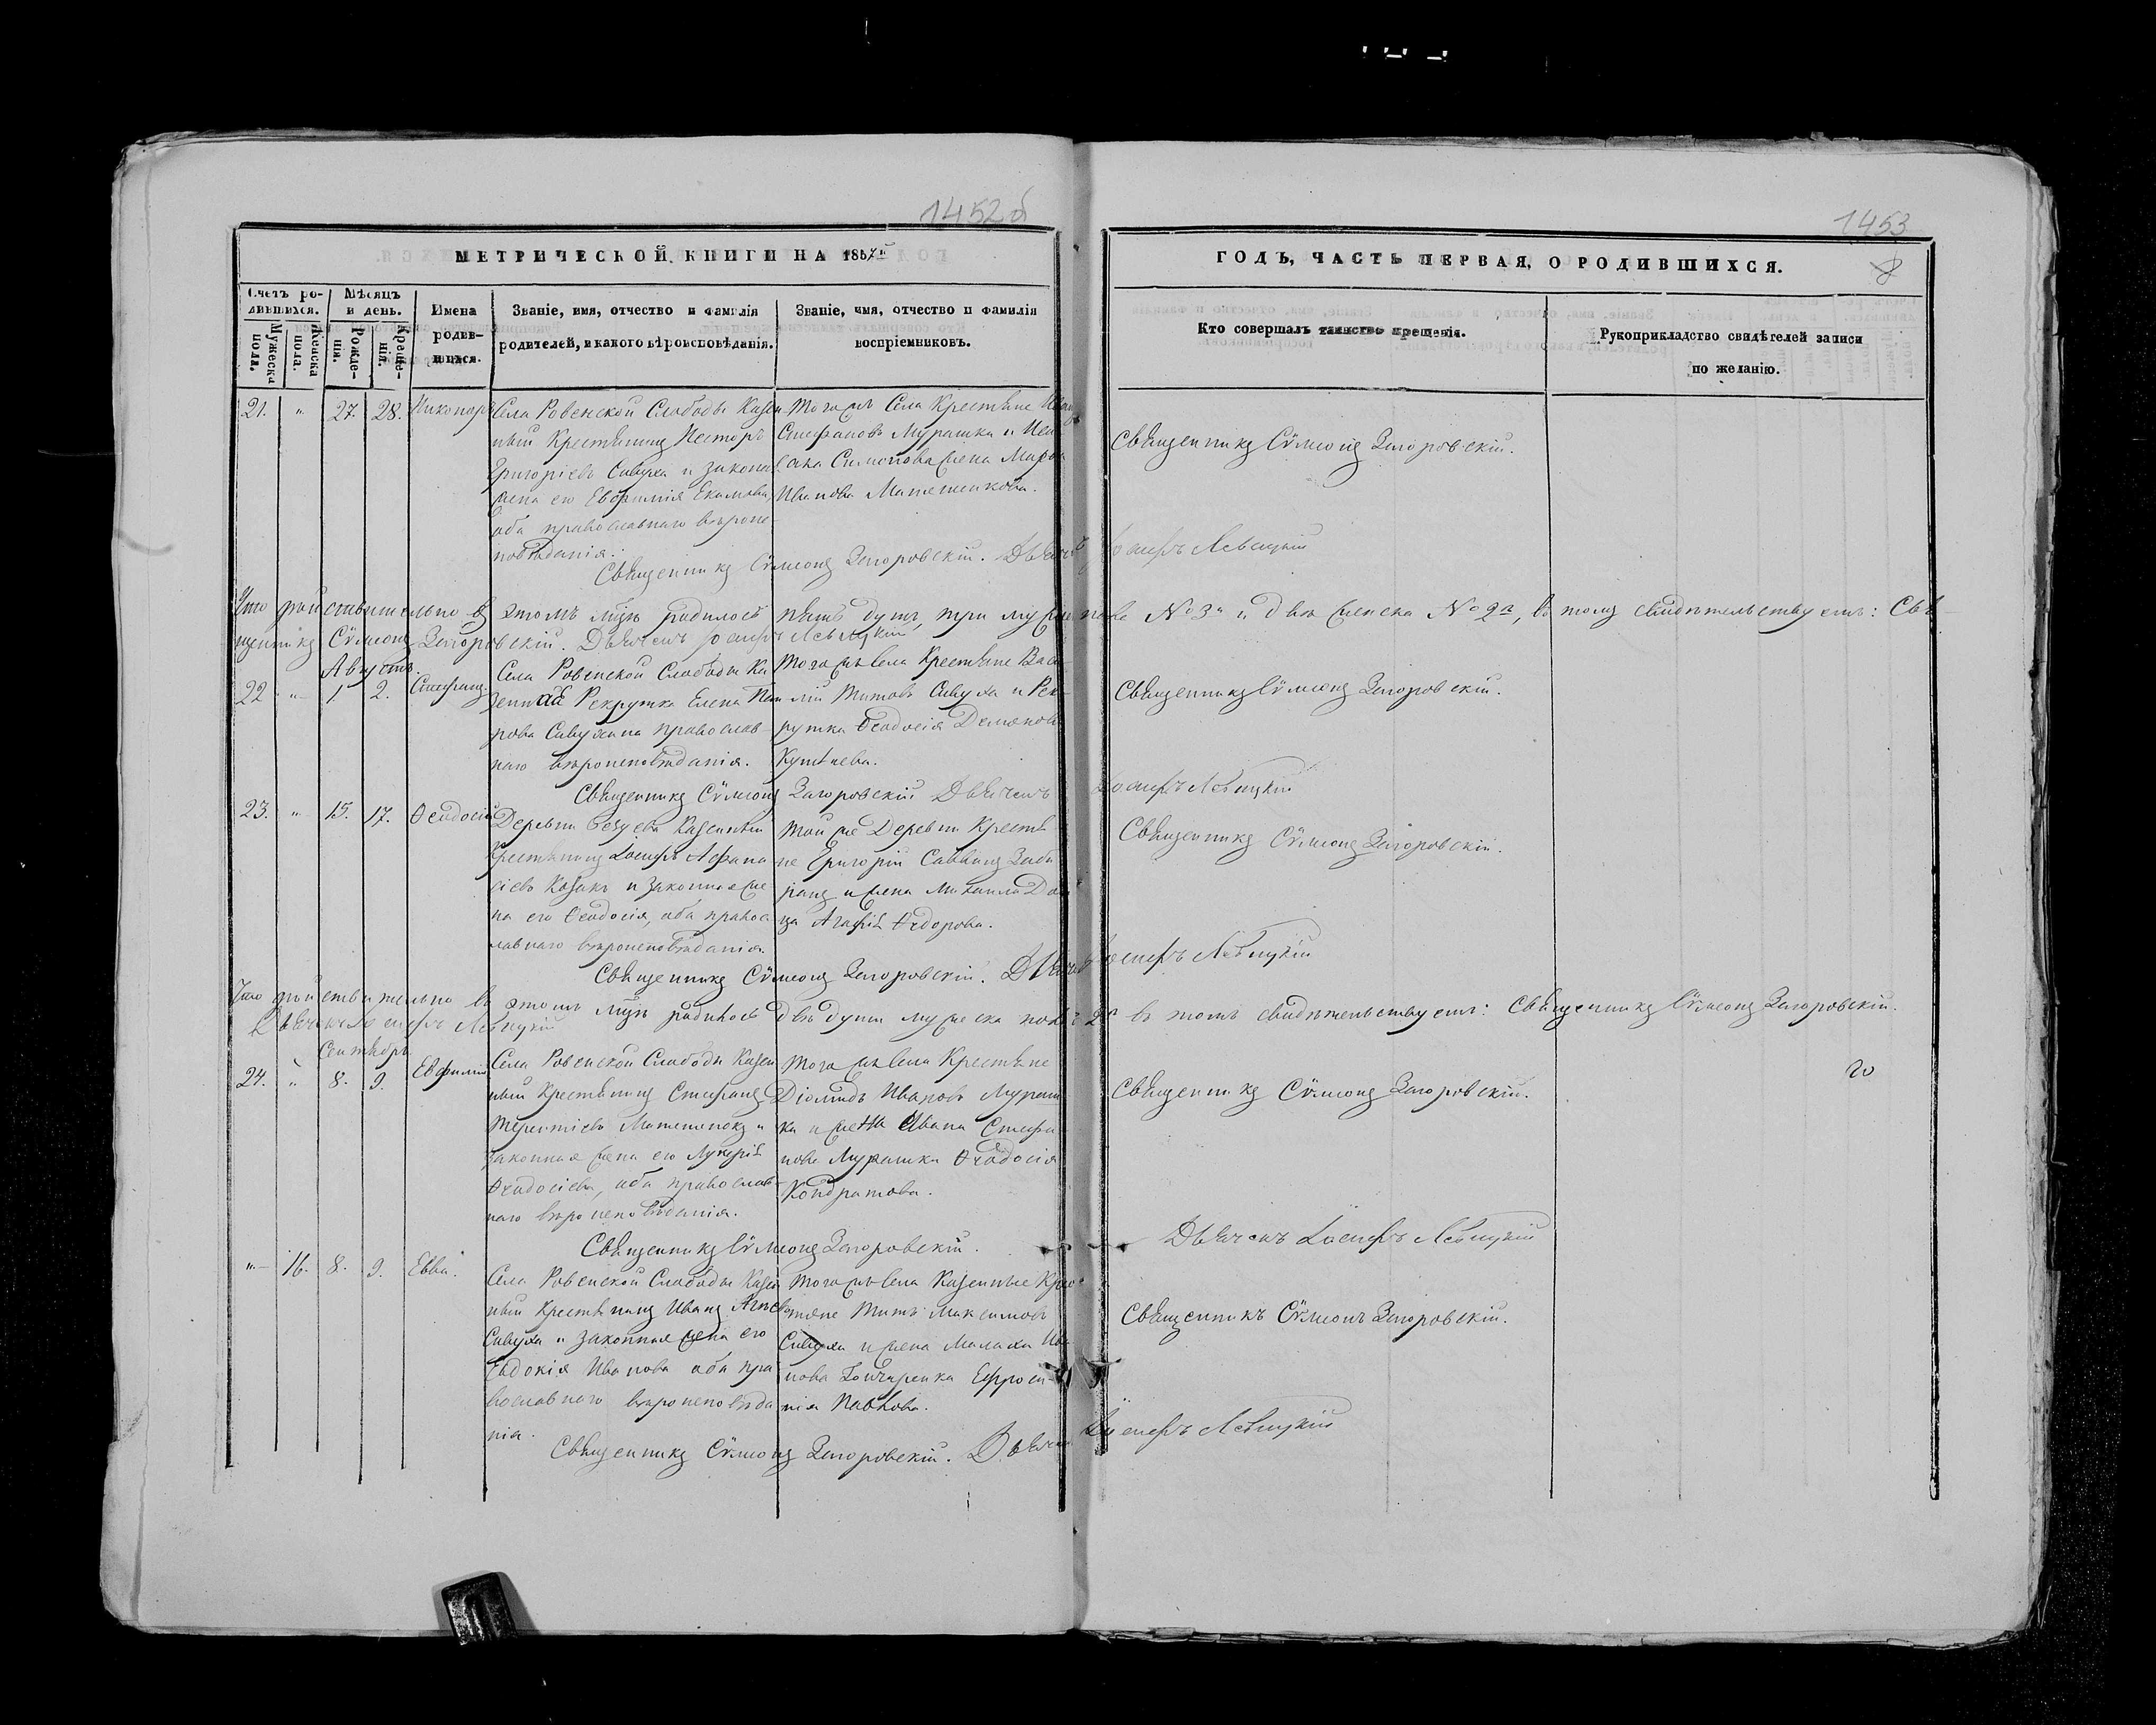 1452 об
1453
МЕТРИЧЕСКОЙ КНИГИ НА 1857й
ГОДЪ, ЧАСТЬ ПЕРВАЯ, О РОДИВШИХСЯ.
8
Счетъ ро-
дившихся.
Мужеска
пола.
Женска
пола.
Мѣсяцъ
и день.
Рожде-
нія.
Креще-
нія.
Имена
родив-
шихся.
Званіе, имя, отчество и фамилія
родителей, и какого вѣроисповѣданія.
Званіе, имя, отчество и фамилія
воспріемниковъ.
Кто совершалъ таинство крещенія.
Рукоприкладство свидѣтелей записи
по желанію.
21. " 27. 28. Никифоръ
Села Ровенской Слободы Казен
ный Крестьянинъ Несторъ
Григоріевъ Сивуха и законая
жена его Евфимія Екимова,
оба православнаго вѣроис
повѣданія.
Тогожъ Села Крестьяне Иванъ
Стефановъ Мурашка и
Симонова жена Марфа
Иванова Матюшенкова.
Священникъ Сѵмеонъ Загоровскій.
Священникъ Сѵмеонъ Загоровскій. Дьячекъ Іосифъ Левицкій
Что дѣйствительно въ этомъ м-цѣ родилось пять душъ, три мужеска пола № 3й и двѣ женска № 2й, въ томъ свидѣтельствуемъ: Свя
щенникъ Сѵмеонъ Загоровскій. Дьячекъ Іосифъ Левицкій
Августъ.
22 " 1. 2. Стефанъ.
Села Ровенской Слободы Ка
зенная Рекрутка Елена Пет
рова Сивухина православ-
наго вѣроисповѣданія.
Тогожъ Села Крестьяне Васи
лій Титовъ Сивуха и Рек-
рутка Ѳеодосія Демянова
Кутнева.
Священникъ Сѵмеонъ Загоровскій.
Священникъ Сѵмеонъ Загоровскій Дьячекъ Іосифъ Левицкій
23. " 15. 17. Ѳеодосій
Деревни Безуева Казенный
Крестьянинъ Іосифъ Афана
сіевъ Козакъ и законная же
на его Ѳеодосія, оба правос
лавнаго вѣроисповѣданія.
Той же Деревни Крестья
не Григорій Саввинъ
и жена Михаила
Агафія Ѳедорова.
Священникъ Сѵмеонъ Загоровскій.
Священникъ Сѵмеонъ Загоровскій. Дьячекъ Іосифъ Левицкій
Что дѣйствительно въ этомъ м-цѣ родилось двѣ души мужеска пола № 2й въ томъ свидѣтельствуемъ: Священникъ Сѵмеонъ Загоровскій.
Дьячекъ Іосифъ Левицкій
Сентябрь
24. " 8. 9. Евфимій
Села Ровенской Слободы Казен
ный Крестьянинъ Стефанъ
Терентіевъ Матюшенокъ и
законная жена его Лукерія
Ѳеодосіева, оба православ-
наго вѣроисповѣданія.
Тогожъ Села Крестьяне
Діомидъ Ивановъ Мураш
ка и жена Ивана Стефа
нова Мурашки Ѳеодосія
Кондратова.
Священникъ Сѵмеонъ Загоровскій.
Священникъ Сѵмеонъ Загоровскій. Дьячекъ Іосифъ Левицкій
" 16. 8. 9. Евва.
Села Ровенской Слободы Казен
ный Крестьянинъ Иванъ
Сивуха и законная жена его
Евдокія Иванова оба пра
вославнаго вѣроисповѣда
нія.
Тогожъ Села Казенные Крес
тьяне Титъ Максимовъ
Сивуха и жена Малаха Ива
нова Гончаренка Ефроси-
нія Павлова.
Священникъ Сѵмеонъ Загоровскій.
Священникъ Сѵмеонъ Загоровскій. Дьячекъ Іосифъ Левицкій